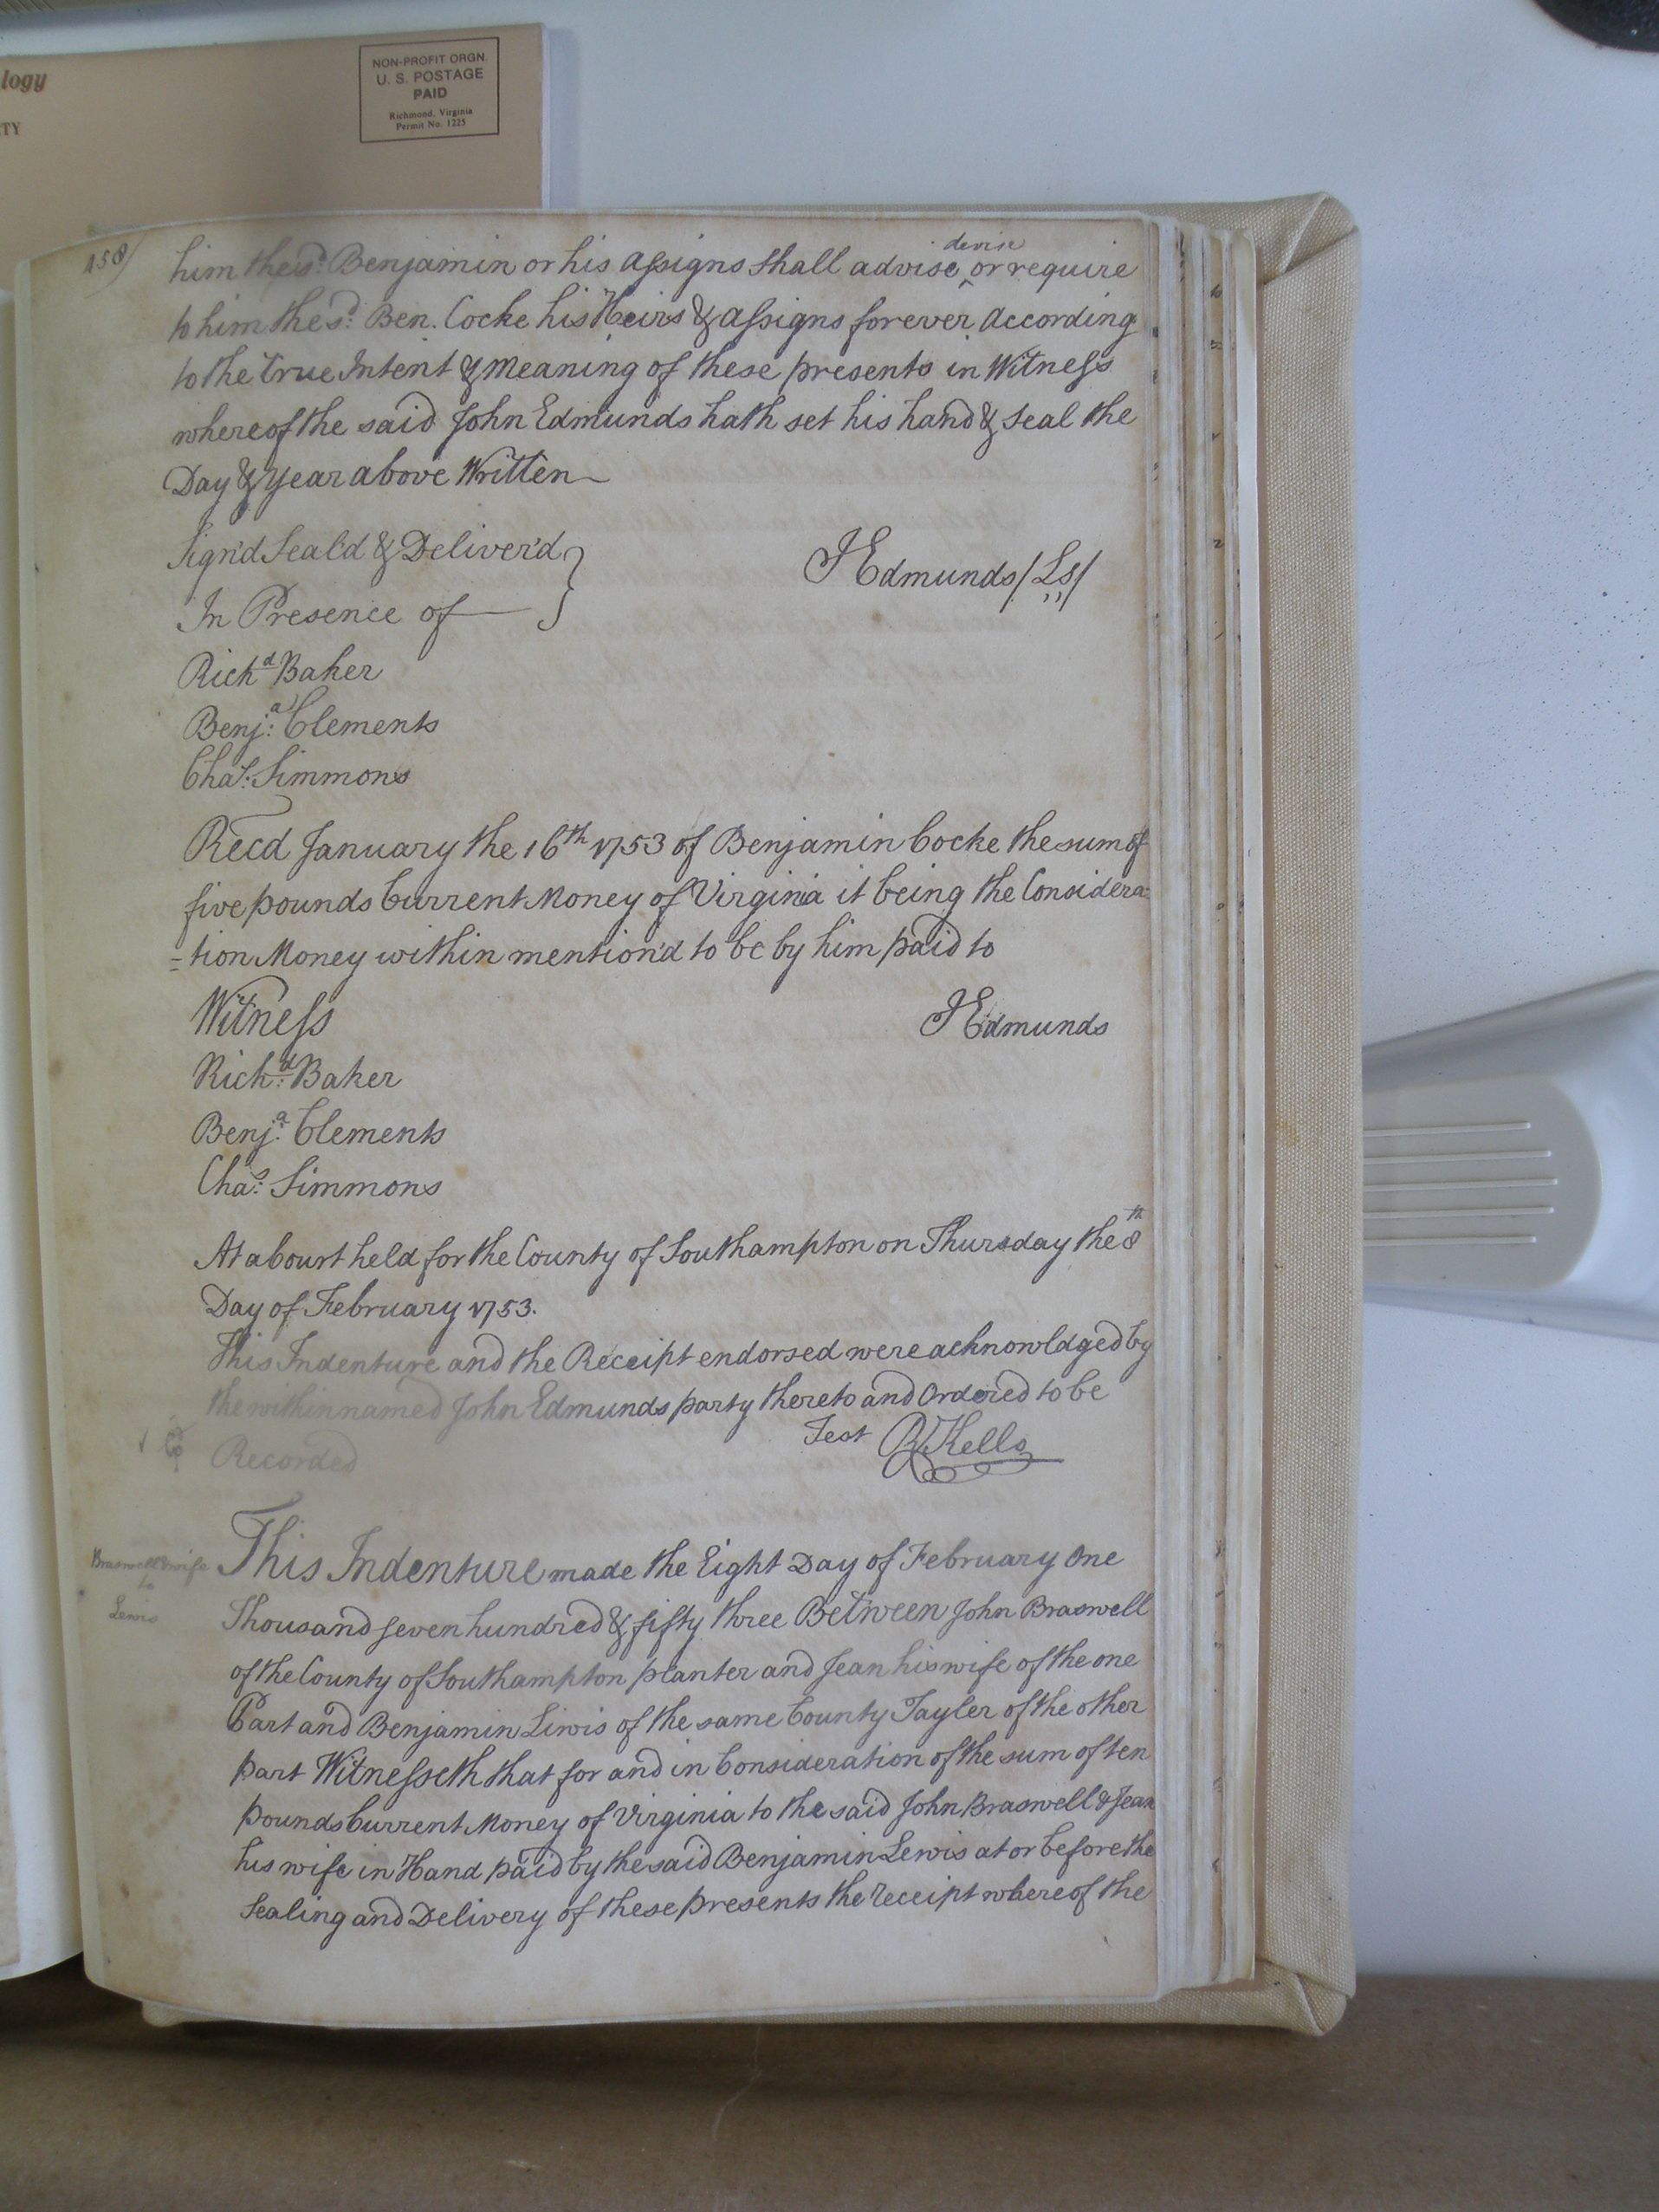 logy
TY
NON-PROFIT ORGN.
U. S. POSTAGE
PAID
Richmond, Virginia
Permit No. 1225
158)
him the sd: Benjamin or his Assigns shall advise devise or require
to him the sd: Ben. Cocke his Heirs & Assigns forever According
to the True Intent & Meaning of these presents in Witness
whereof the said John Edmunds hath set his hand & Seal the
Day & Year above Written
Sign'd Seal'd & Deliver'd }
In Presence of }
JEdmunds /Ls/
Richd Baker
Benja: Clements
Chas: Simmons
Recd January the 16th 1753 of Benjamin Cocke the sum of
five pounds Current Money of Virginia it being the Considera=
=tion Money within mention'd to be by him paid to
Witness
JEdmunds
Richd: Baker
Benja: Clements
Chas: Simmons
At a Court held for the County of Southampton on Thursday the 8th
Day of February 1753.
This Indenture and the Receipt endorsed were acknowldged by
the within named John Edmunds party thereto and Ordered to be
Recorded
Test RKello
Braswell & wife
to
Lewis
This Indenture made the Eight Day of February One
Thousand seven hundred & fifty three Between John Braswell
of the County of Southampton planter and Jean his wife of the one
Part and Benjamin Liwis of the same County Tayler of the other
part Witnesseth that for and in Consideration of the sum of ten
pounds Current Money of Virginia to the said John Braswell & Jean
his wife in Hand paid by the said Benjamin Lewis at or before the
Sealing and Delivery of these presents the receipt whereof the